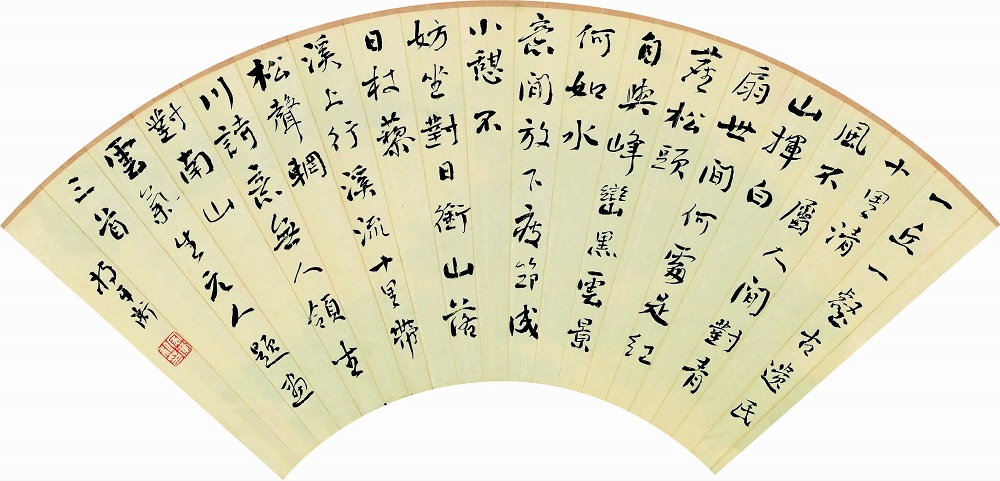 一丘一壑古遺民
十里清
風不屬人間對青
山揮白
扇世間何處是紅
塵松頭
自與峰巒黑雲景
何如水
意間放下疲筇成
小憩不
妨坐對日銜山落
日杖藜
溪上行溪流十里帶
松聲輞
川詩意無人領坐
對南山
雲氣生元人題畫
三首